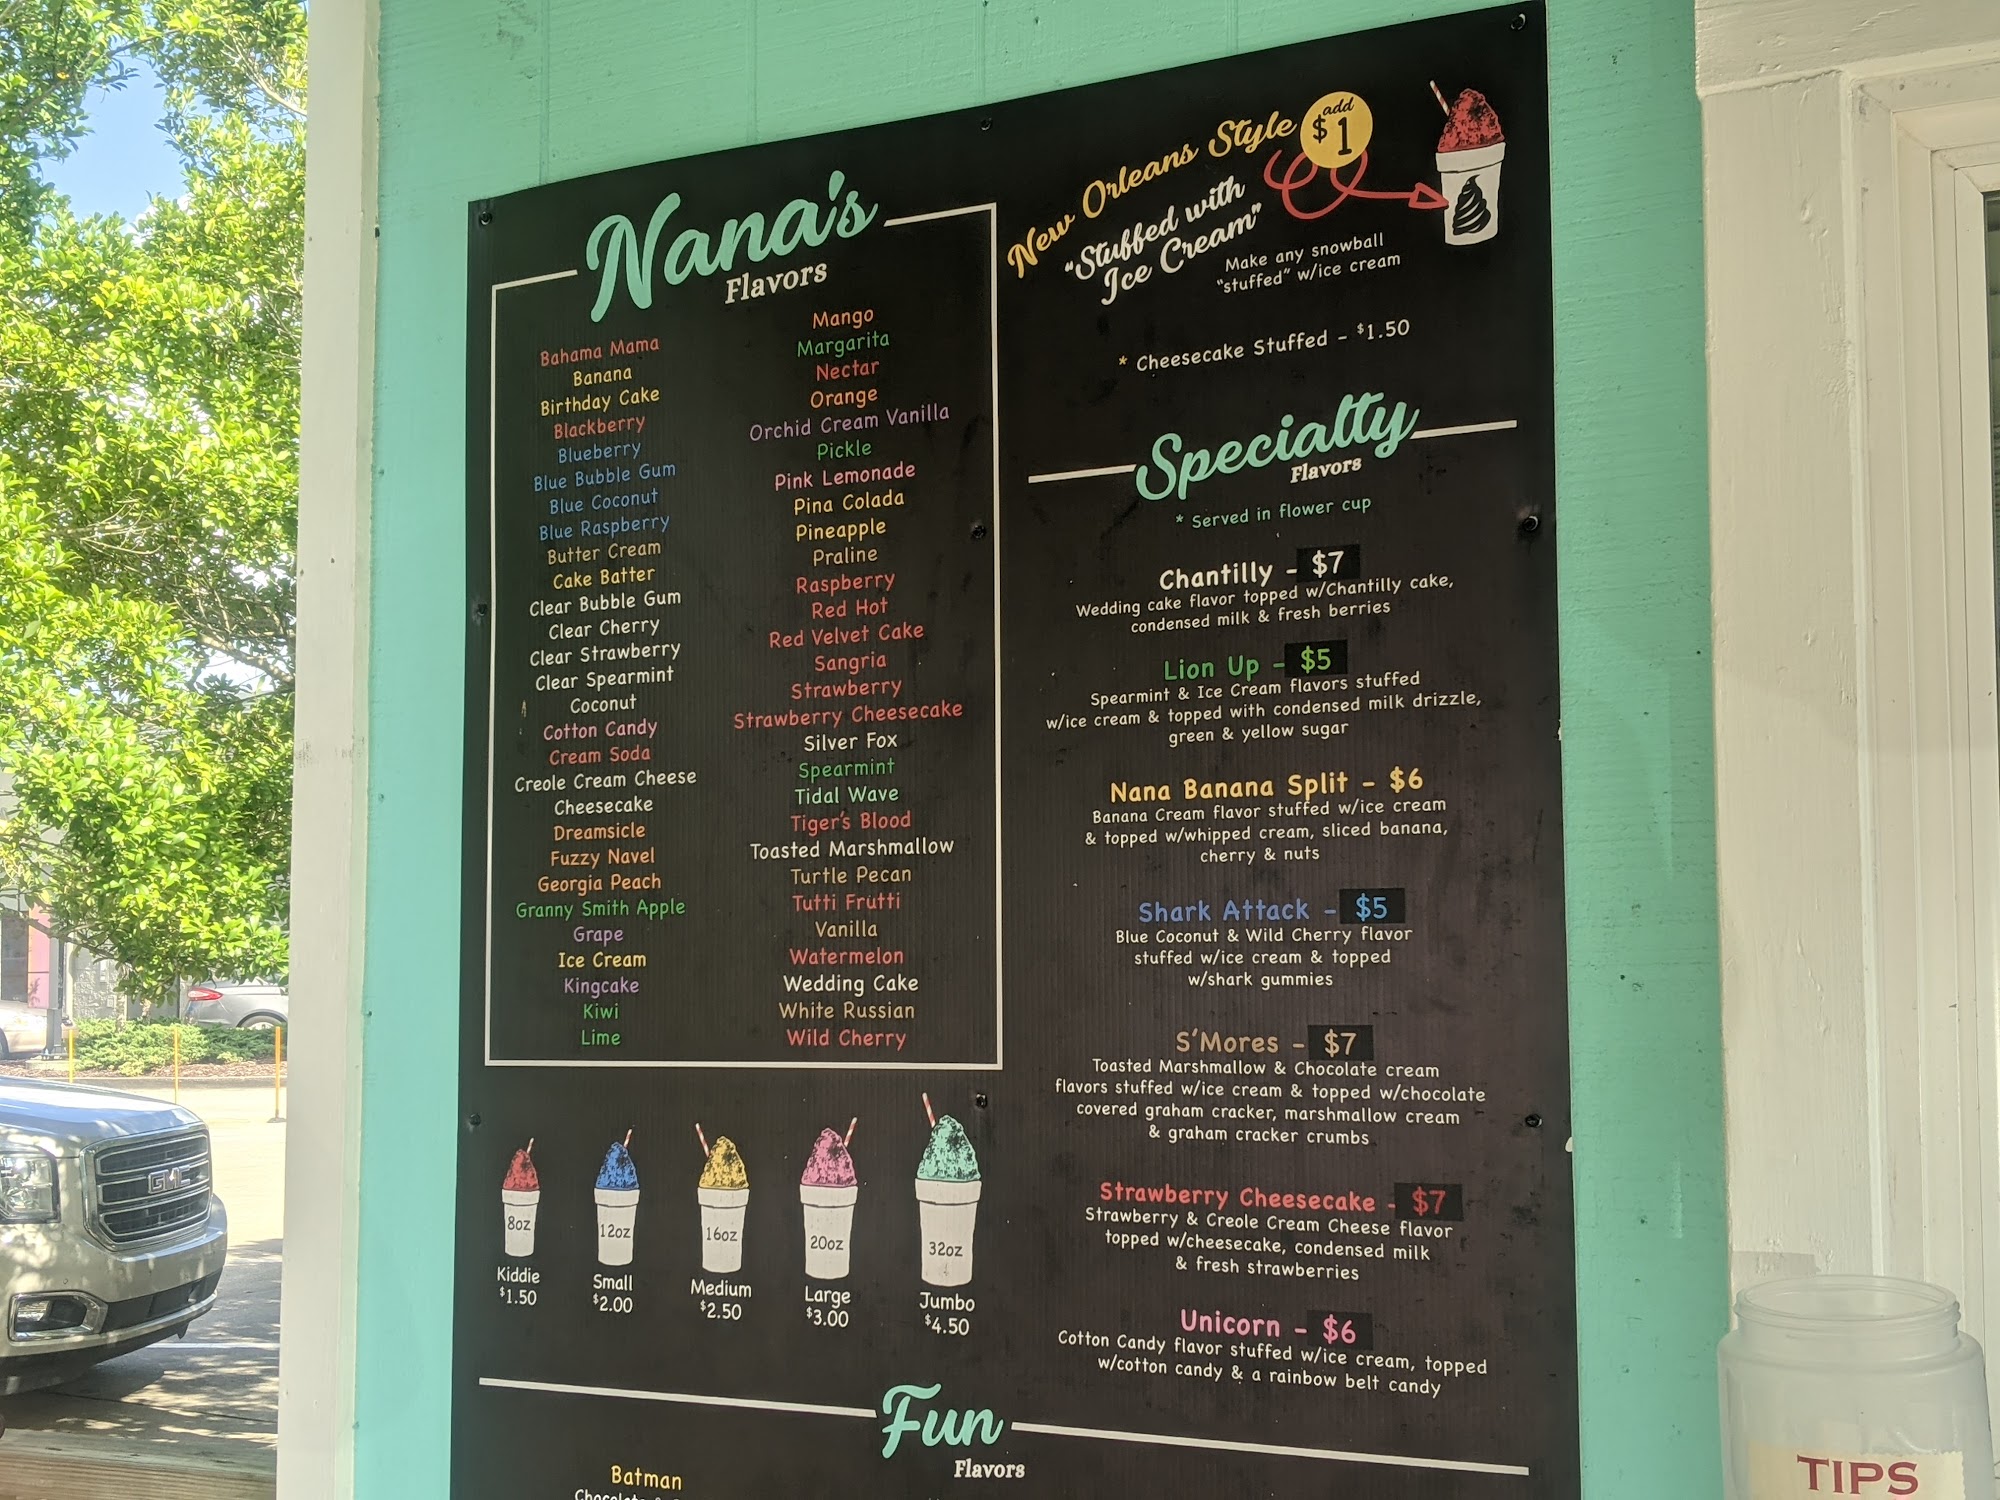 Nana's
Flavors
Bahama Mama
Banana
Birthday Cake
Blackberry
Blueberry
Blue Bubble Gum
Blue Coconut
Blue Raspberry
Butter Cream
Cake Batter
Clear Bubble Gum
Clear Cherry
Clear Strawberry
Clear Spearmint
Coconut
Cotton Candy
Cream Soda
Creole Cream Cheese
Cheesecake
Dreamsicle
Fuzzy Navel
Georgia Peach
Granny Smith Apple
Grape
Ice Cream
Kingcake
Kiwi
Lime
Mango
Margarita
Nectar
Orange
Orchid Cream Vanilla
Pickle
Pink Lemonade
Pina Colada
Pineapple
Praline
Raspberry
Red Hot
Red Velvet Cake
Sangria
Strawberry
Strawberry Cheesecake
Silver Fox
Spearmint
Tidal Wave
Tiger's Blood
Toasted Marshmallow
Turtle Pecan
Tutti Frutti
Vanilla
Watermelon
Wedding Cake
White Russian
Wild Cherry
8oz
12oz
16oz
20oz
32oz
Kiddie
$1.50
Small
$2.00
Medium
$2.50
Large
$3.00
Jumbo
$4.50
New Orleans Style
add
$1
"Stuffed with
Ice Cream"
Make any snowball
"stuffed" w/ice cream
* Cheesecake Stuffed - $1.50
Specialty
Flavors
* Served in flower cup
Chantilly - $7
Wedding cake flavor topped w/Chantilly cake,
condensed milk & fresh berries
Lion Up - $5
Spearmint & Ice Cream flavors stuffed
w/ice cream & topped with condensed milk drizzle,
green & yellow sugar
Nana Banana Split - $6
Banana Cream flavor stuffed w/ice cream
& topped w/whipped cream, sliced banana,
cherry & nuts
Shark Attack - $5
Blue Coconut & Wild Cherry flavor
stuffed w/ice cream & topped
w/shark gummies
S'Mores - $7
Toasted Marshmallow & Chocolate cream
flavors stuffed w/ice cream & topped w/chocolate
covered graham cracker, marshmallow cream
& graham cracker crumbs
Strawberry Cheesecake - $7
Strawberry & Creole Cream Cheese flavor
topped w/cheesecake, condensed milk
& fresh strawberries
Unicorn - $6
Cotton Candy flavor stuffed w/ice cream, topped
w/cotton candy & a rainbow belt candy
Fun
Flavors
Batman
GMC
TIPS